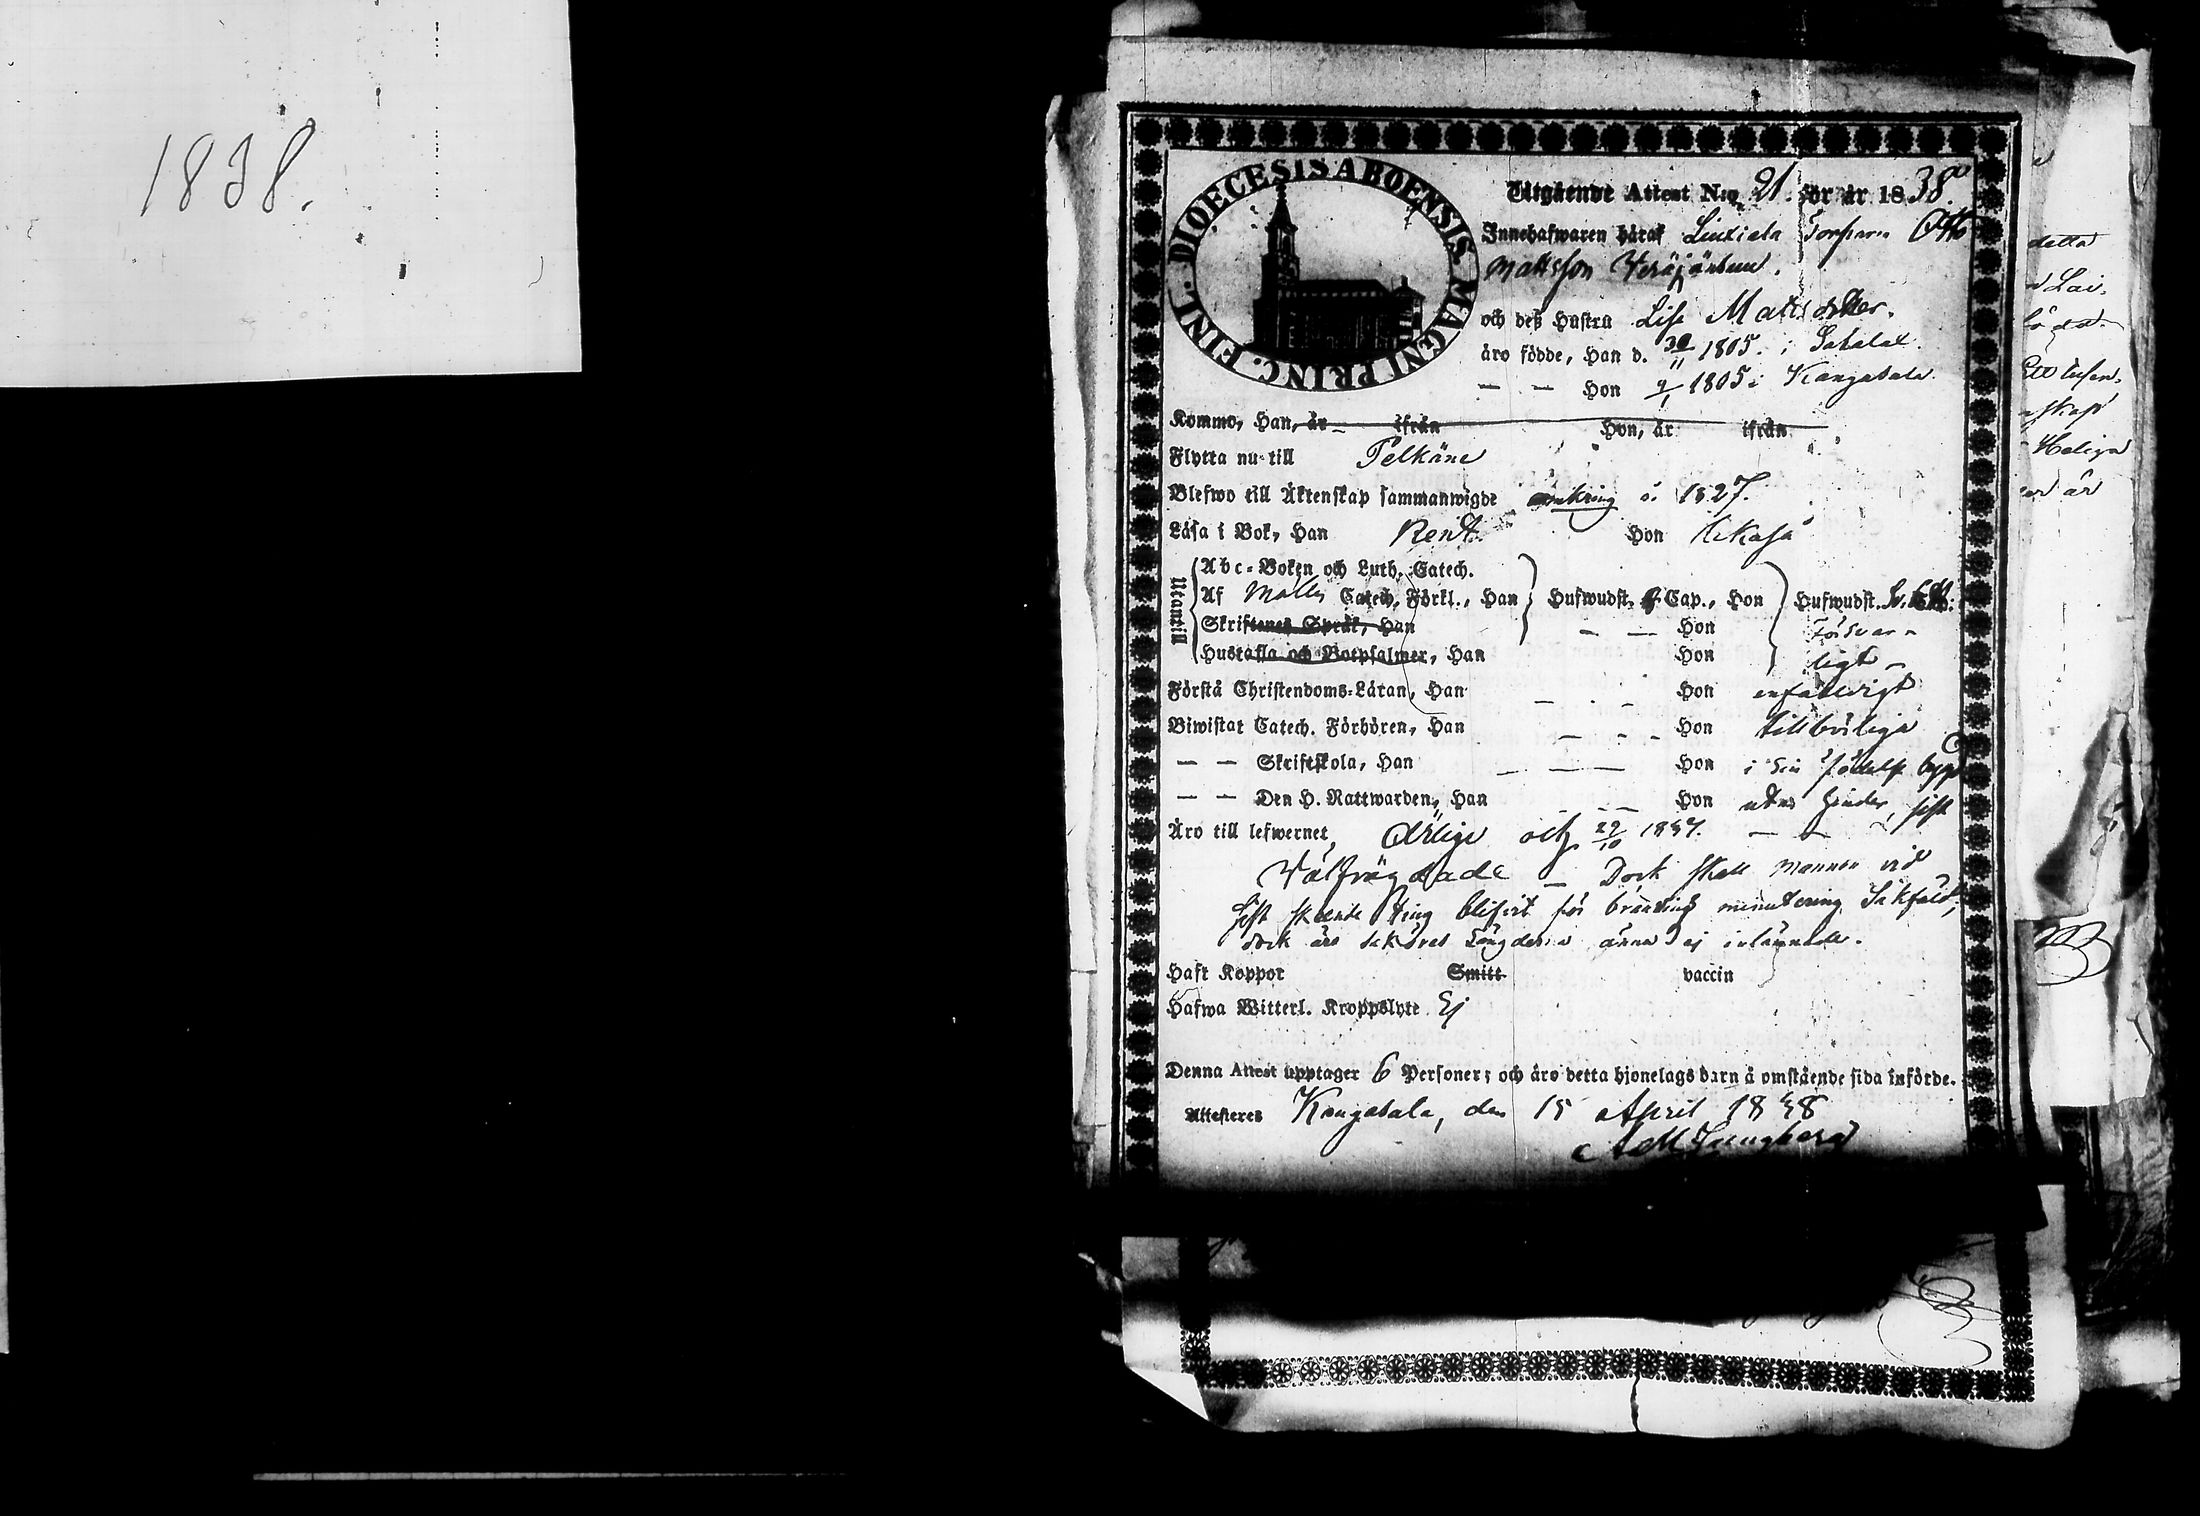 1838.
DIOECESIS ABOENSIS. MAGNI PRINC. FINL.
Utgående Attest N:o 21. för år 1838.
Innehafwaren häraf Liuxiala Torparn Otto
Mattsson
och deß Hustru Lisa Mattsdotter.
äro födde, Han d. 30/11 1805. i Sahalax.
— — Hon 9/1 1805 i Kangasala
Kommo, Han, år ifrån Hon, år ifrån
Flytta nu till Pelkäne
Blefwo till Äktenskap sammanwigde omkring å. 1827.
Läsa i Bok, Han Rent. Hon likaså
Utantill
Abc-Boken och Luth. Catech.
Af Catech. Förkl., Han Hufwudst. Cap., Hon Hufwudst.
Skriftenes Språk, Han — — Hon försvar-
Hustafla och Botpsalmer, Han Hon ligt
Förstå Christendoms-Läran, Han — - - Hon enfaldigt
Biwistat Catech. Förhören, Han — - - Hon tillbörliga
— — Skriftskola, Han — — — Hon i sin födelse bygd
— — Den H. Nattwarden, Han — — Hon utan hinder, sist
Äro till lefwernet, Ärlige och 29/10 1837. — —
Välfrägdade — Dock skall mannen vid
sist skedde Ting blifvit för bränvins minutering Sakfäld,
dock äro saköres Längderna ännu ej inlämnade.
Haft Koppor Smitt vaccin
Hafwa Witterl. Kroppslyte Ej
Denna Attest upptager 6 Personer; och äro detta hjonelags barn å omstående sida införde.
Attesteras Kangasala, den 15 April 1838
detta
Heliga
är